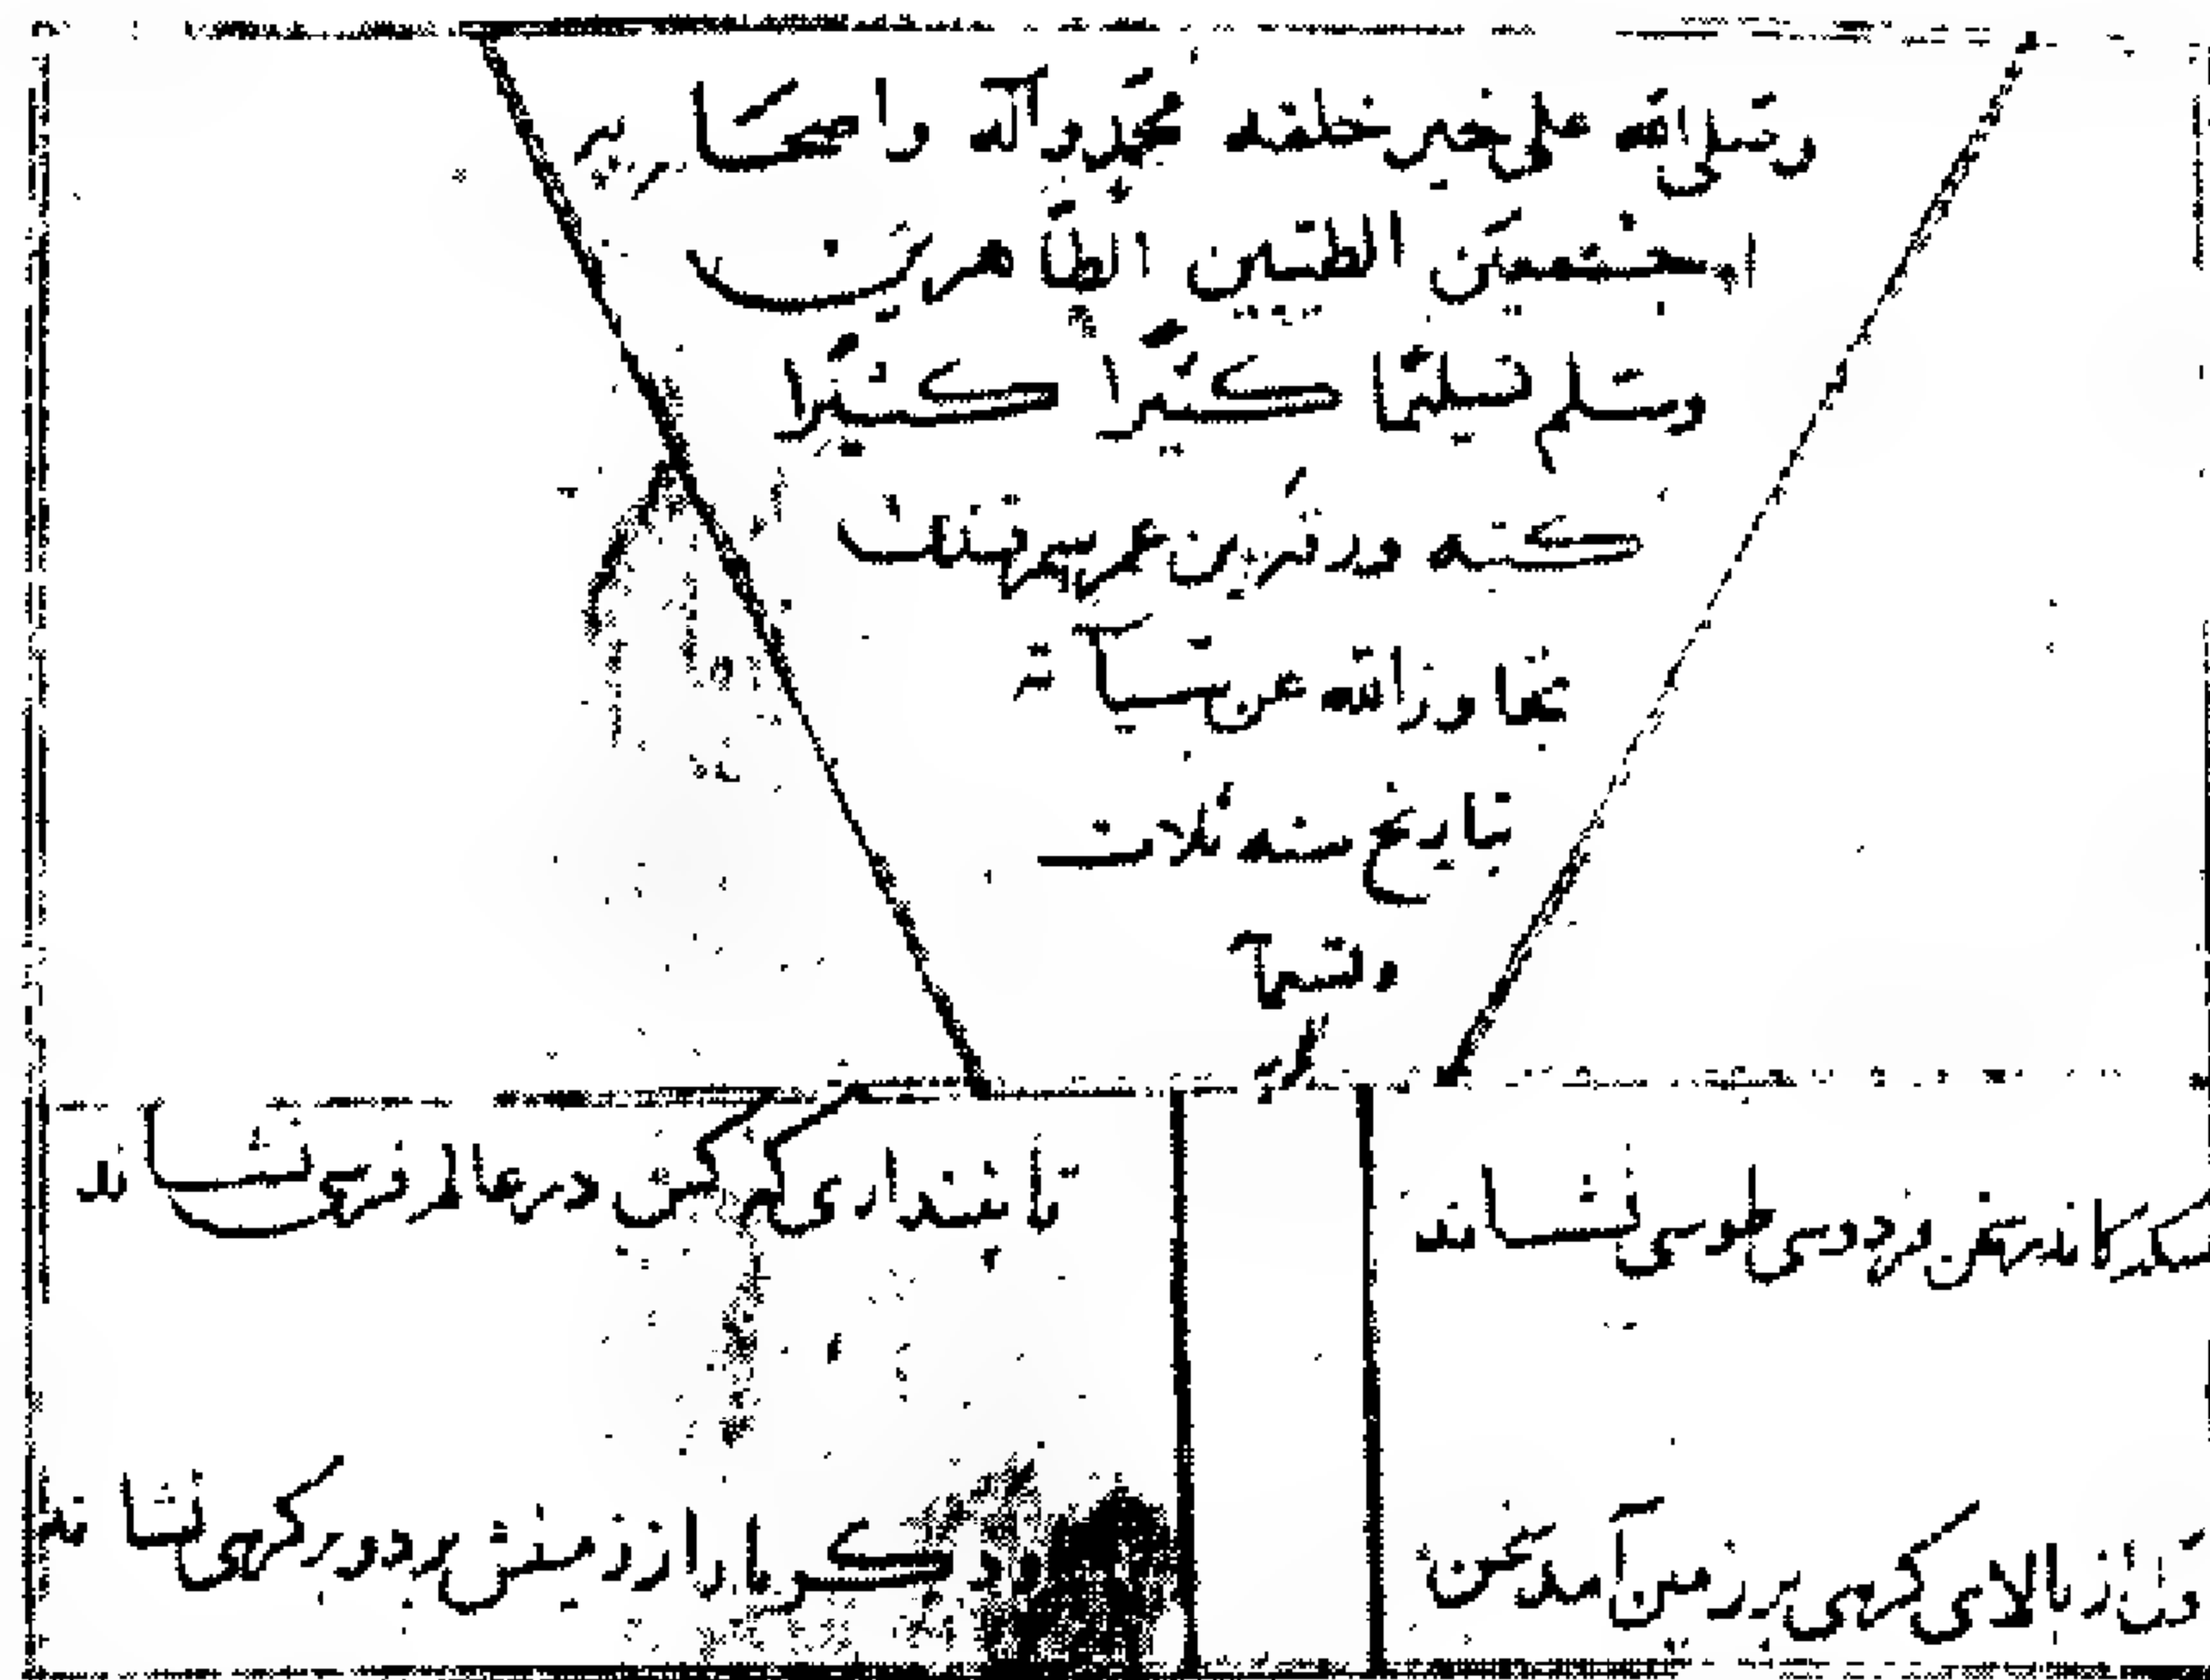 وصلى الله على خير خلقه محمد وآله واصحابه
اجمعين الطيبين الطاهرين
وسلم تسليمًا كثيرًا كثيرًا
كتبه ورقه بن عمر
تجاوز الله عن سيآته
بتاريخ سنه ثلاث
وتسعمآ
ئه
کاندر سخن فردوسی طوسی نشاند
تا نپنداری که کس در عالم فرسی نشاند
اول از بالای کرسی بر زمین آمد سخن
دکر بار از زمینش برد و بر کرسی نشاند